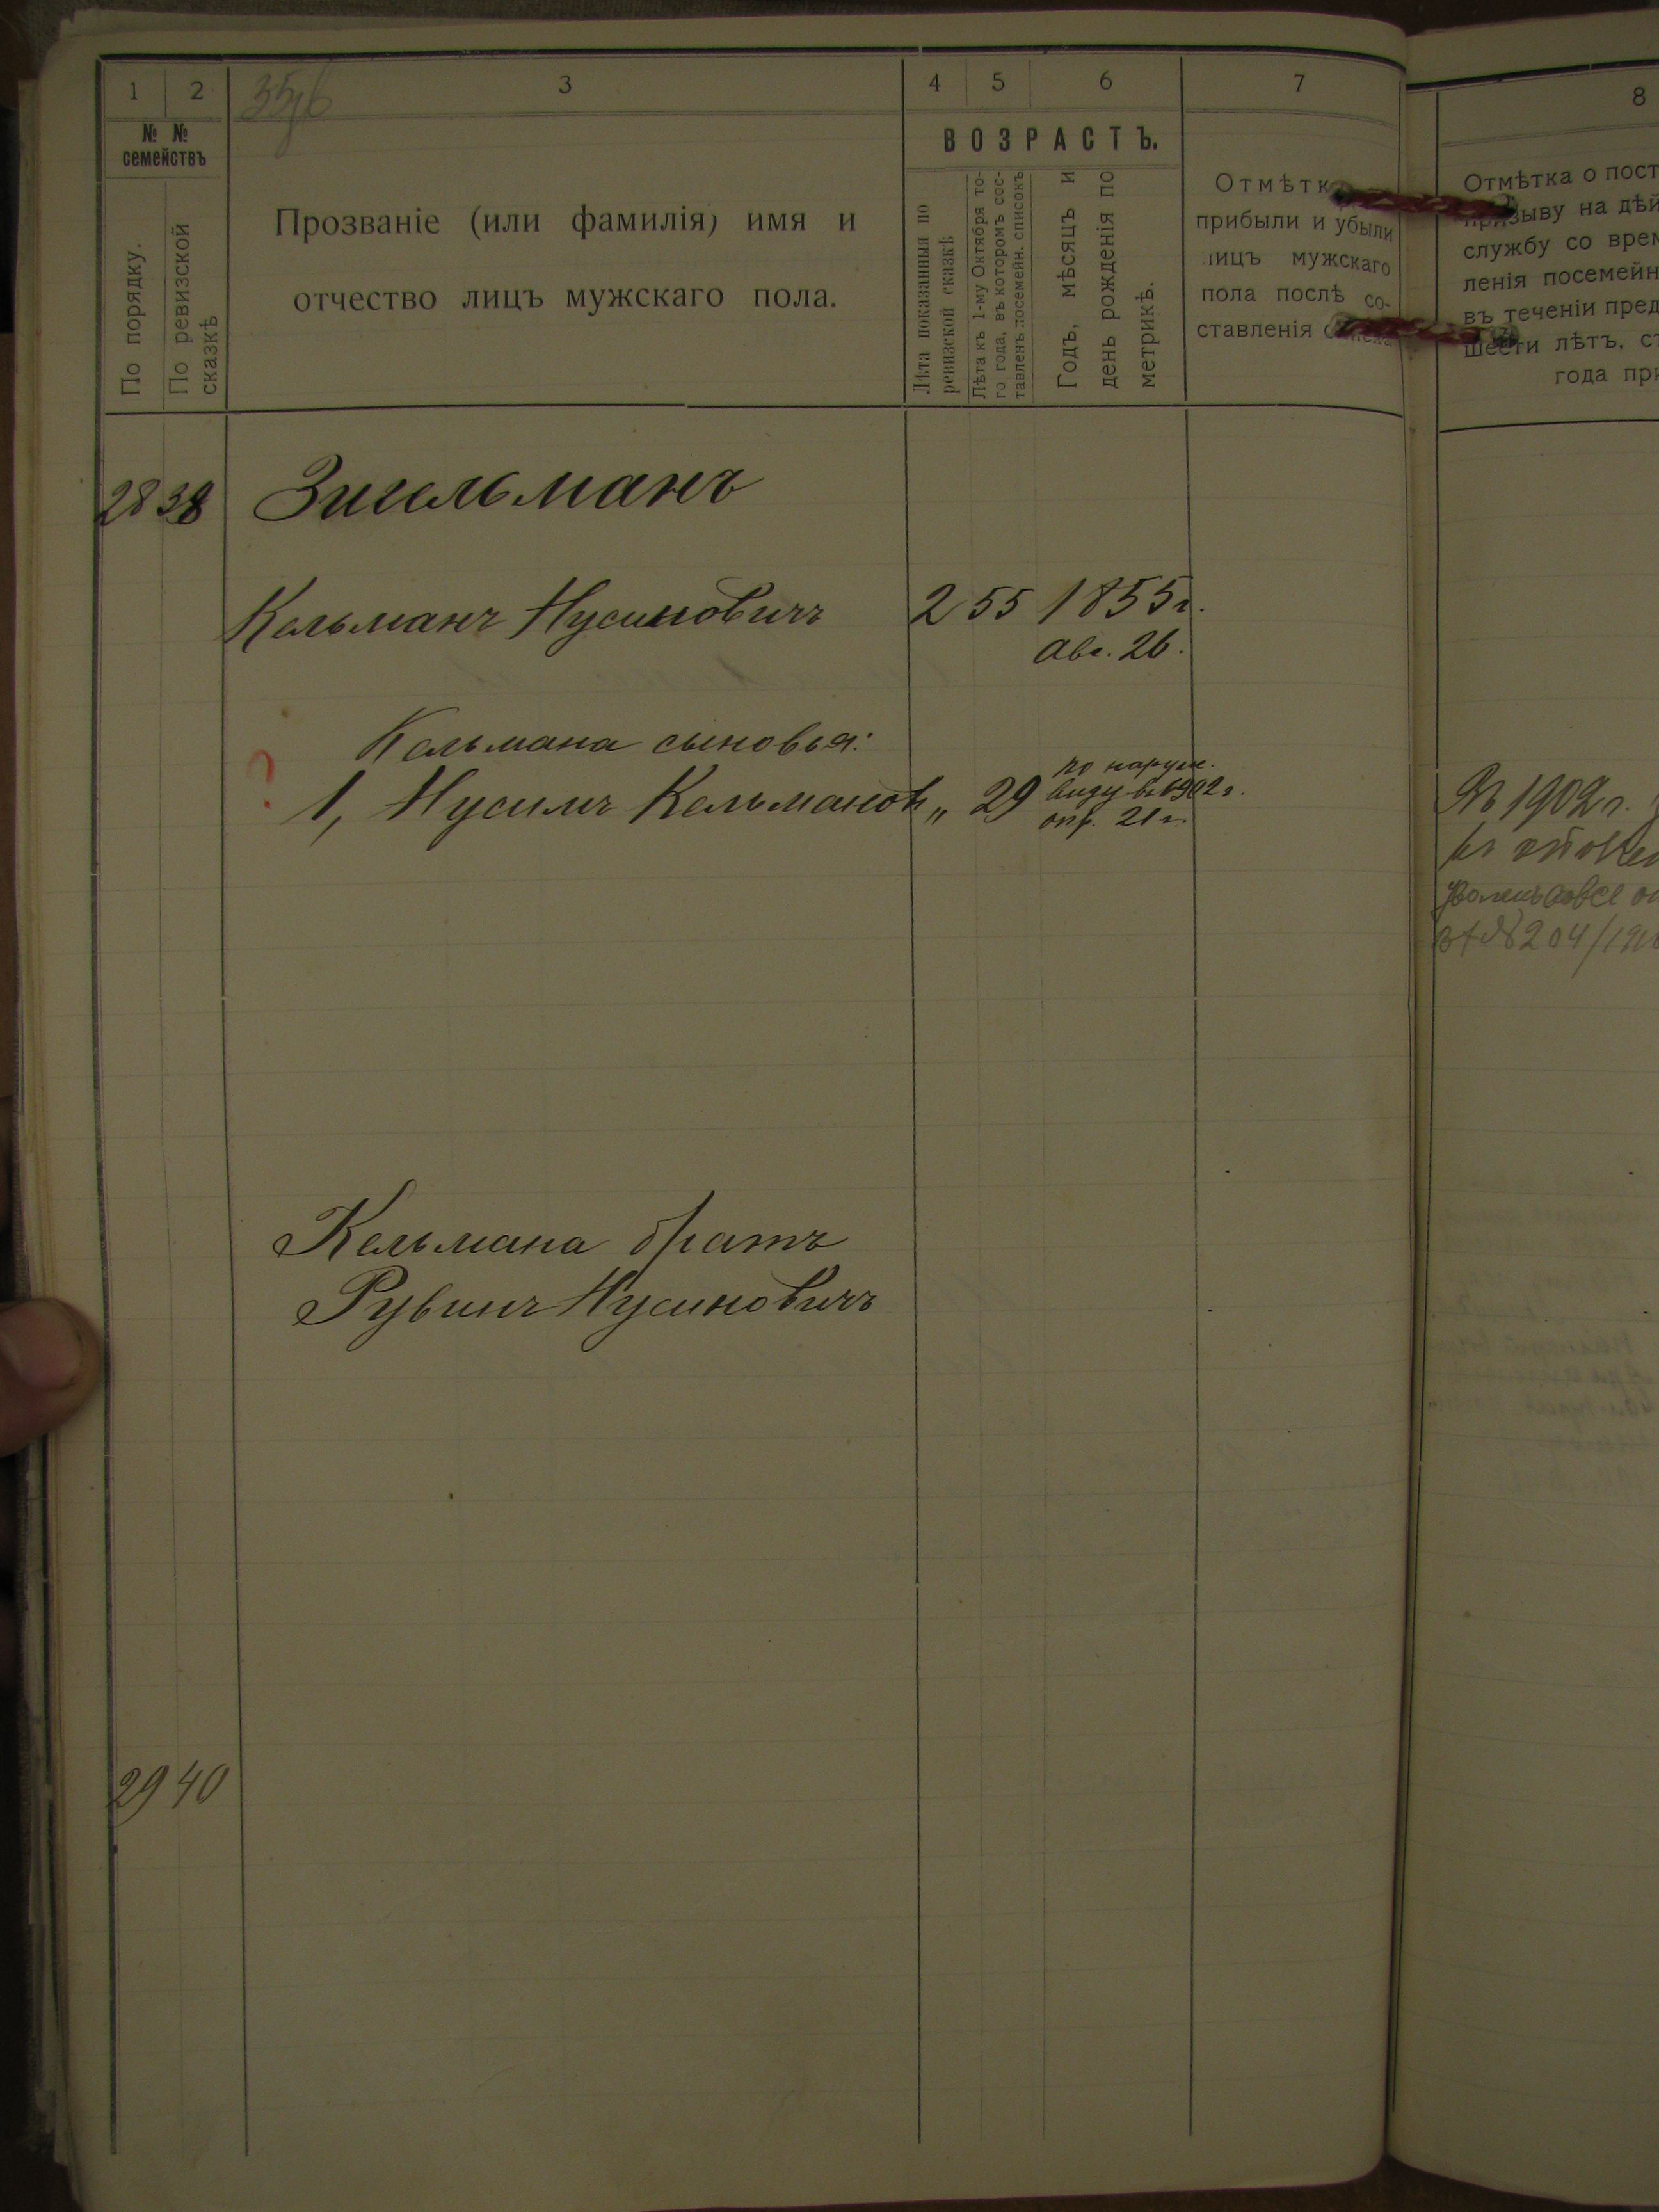 1 2 3 4 5 6 7
№ № семействъ
По порядку.
По ревизской сказкѣ
Прозваніе (или фамилія) имя и
отчество лицъ мужскаго пола.
ВОЗРАСТЪ.
Лѣта показанныя по
ревизской сказкѣ
Лѣта къ 1-му Октября то-
го года, въ которомъ сос-
тавленъ посемейн. списокъ
Годъ, мѣсяцъ и
день рожденія по
метрикѣ.
Отмѣтка
прибыли и убыли
лицъ мужскаго
пола послѣ со-
ставленія списка
28 38 Зигельманъ
Кельманъ Нусиновичъ 2 55 1855 г.
Авг. 26.
Кельмана сыновья:
? 1, Нусимъ Кельмановъ „ 29 по наружн.
виду въ 1902 г.
опр. 21 г.
Кельмана братъ
Рувинъ Нусиновичъ
29 40
8
Отмѣтка о пост
призыву на дѣй
службу со врем
ленія посемейн
въ теченіи пред
шести лѣтъ, ст
года при
Въ 1902 г.
№ 204/19